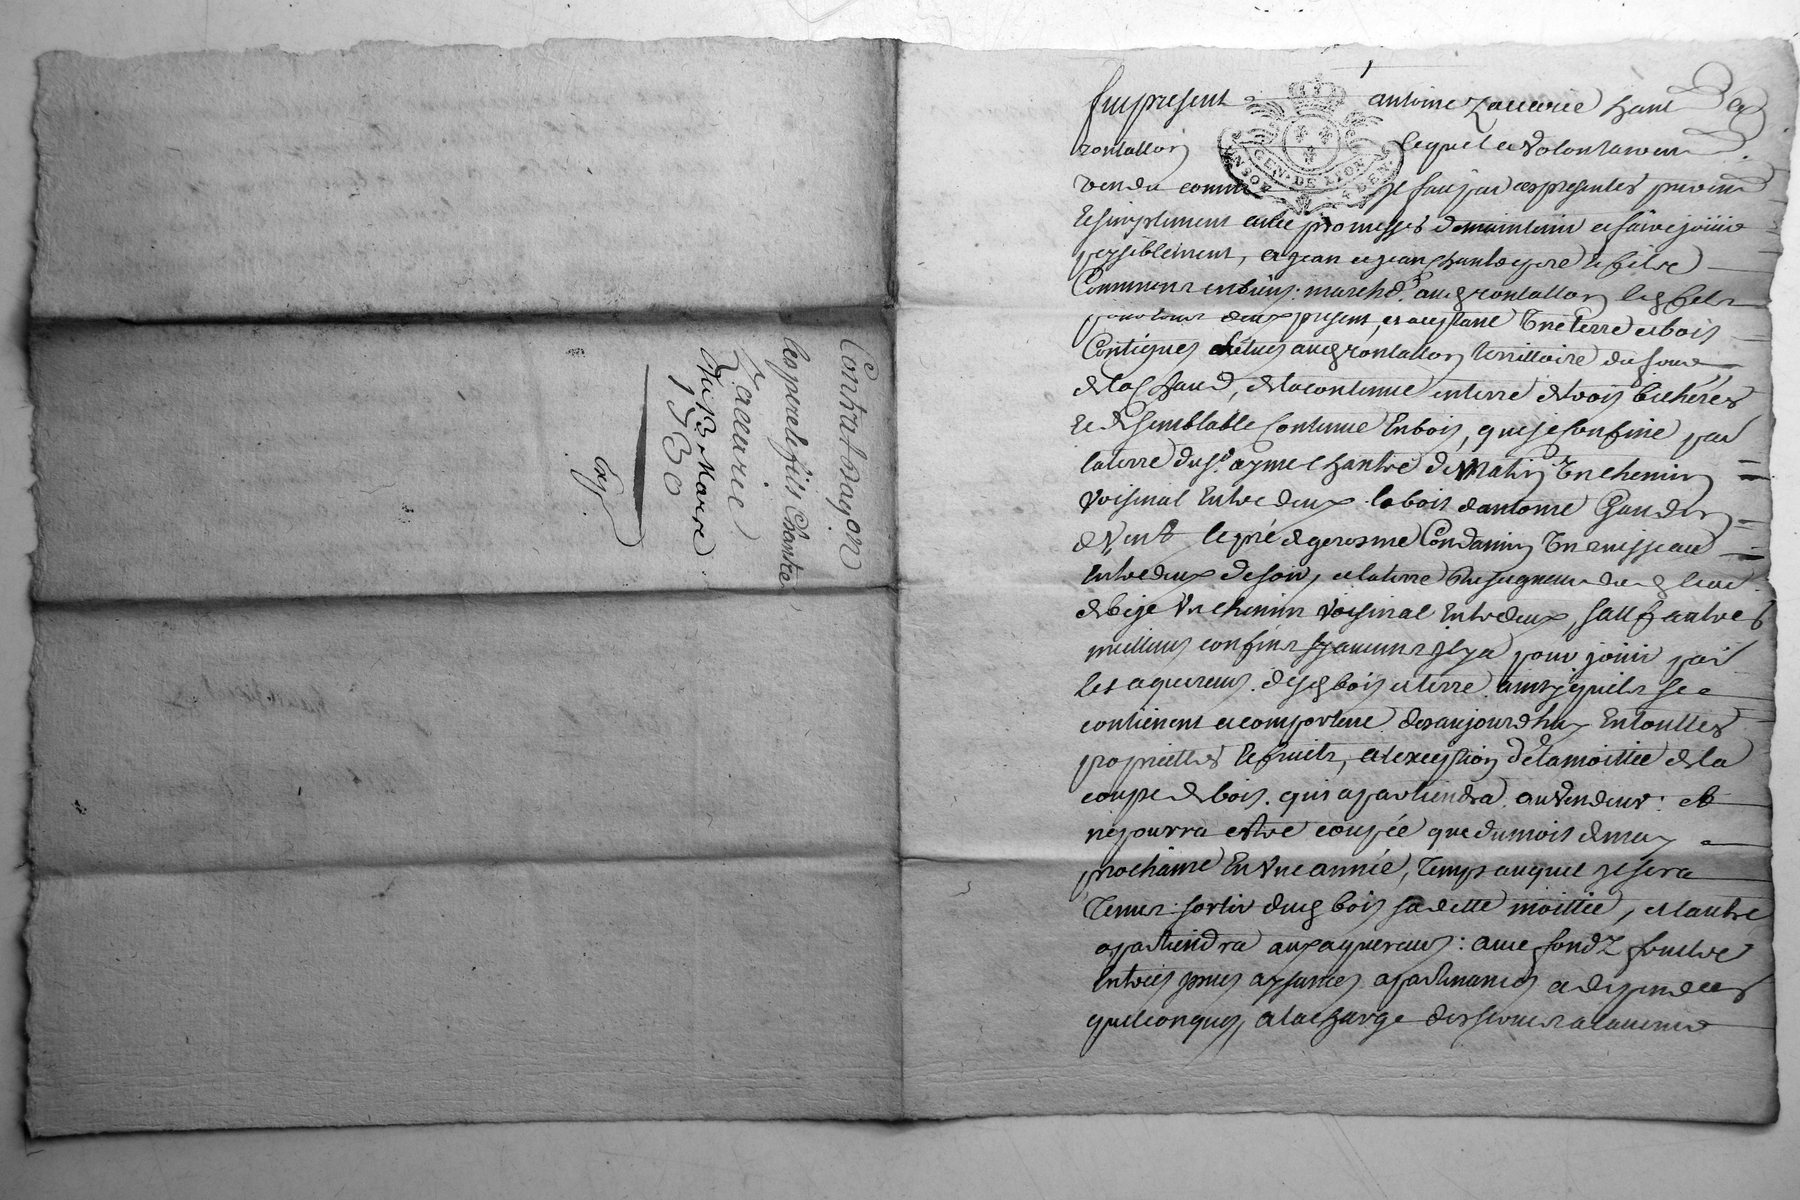 Contrat dayon
les pere le fils Chantre
Zacurie
du 13 Marce
1730
fut present antoine Zacarie hant De
rontallon lequel a volontairem
vendu comme il fait par ces presentes purem
Et simplement avec promesses de maintenir et faire jouir
paysiblement, a jean et jean chantre pere Et fils
Communs en biens march.ds aud rontallon les
present et aceptant Une terre et bois
Contigues situés aud rontallon territoire du
de la Chaud, de la contenue en terre de trois bicherées
Et de semblable Contenue En bois, qui se confine par
la terre du s.r ayme Chantre de Matin Un chemin
voisinal Entre deux le bois dantoine
de Vent le pré de gerosme Condamin Un ruisseau
Entre deux de soir, et la terre du seigneur dud lieu
de bize Un chemin voisinal Entre deux, sauf autres
meilleurs confins sy aucuns il y a pour jouir par
les aquereurs desd bois et terre ainsy quils se
contienent et comportent des aujourdhuy En touttes
proprietés Et fruits, a lexception de la moittié de la
coupe de bois qui apartiendra au vendeur et
ne pourra estre coupée que du mois de may
prochaine En Une année, Temps auquel il sera
Tenu sortir dud bois sa dette moittié, et lautre
apartiendra aux aquereurs : avec fondz
Entrées aysances apartenances et dependces
quelconques, a la charge des servis a lavenir